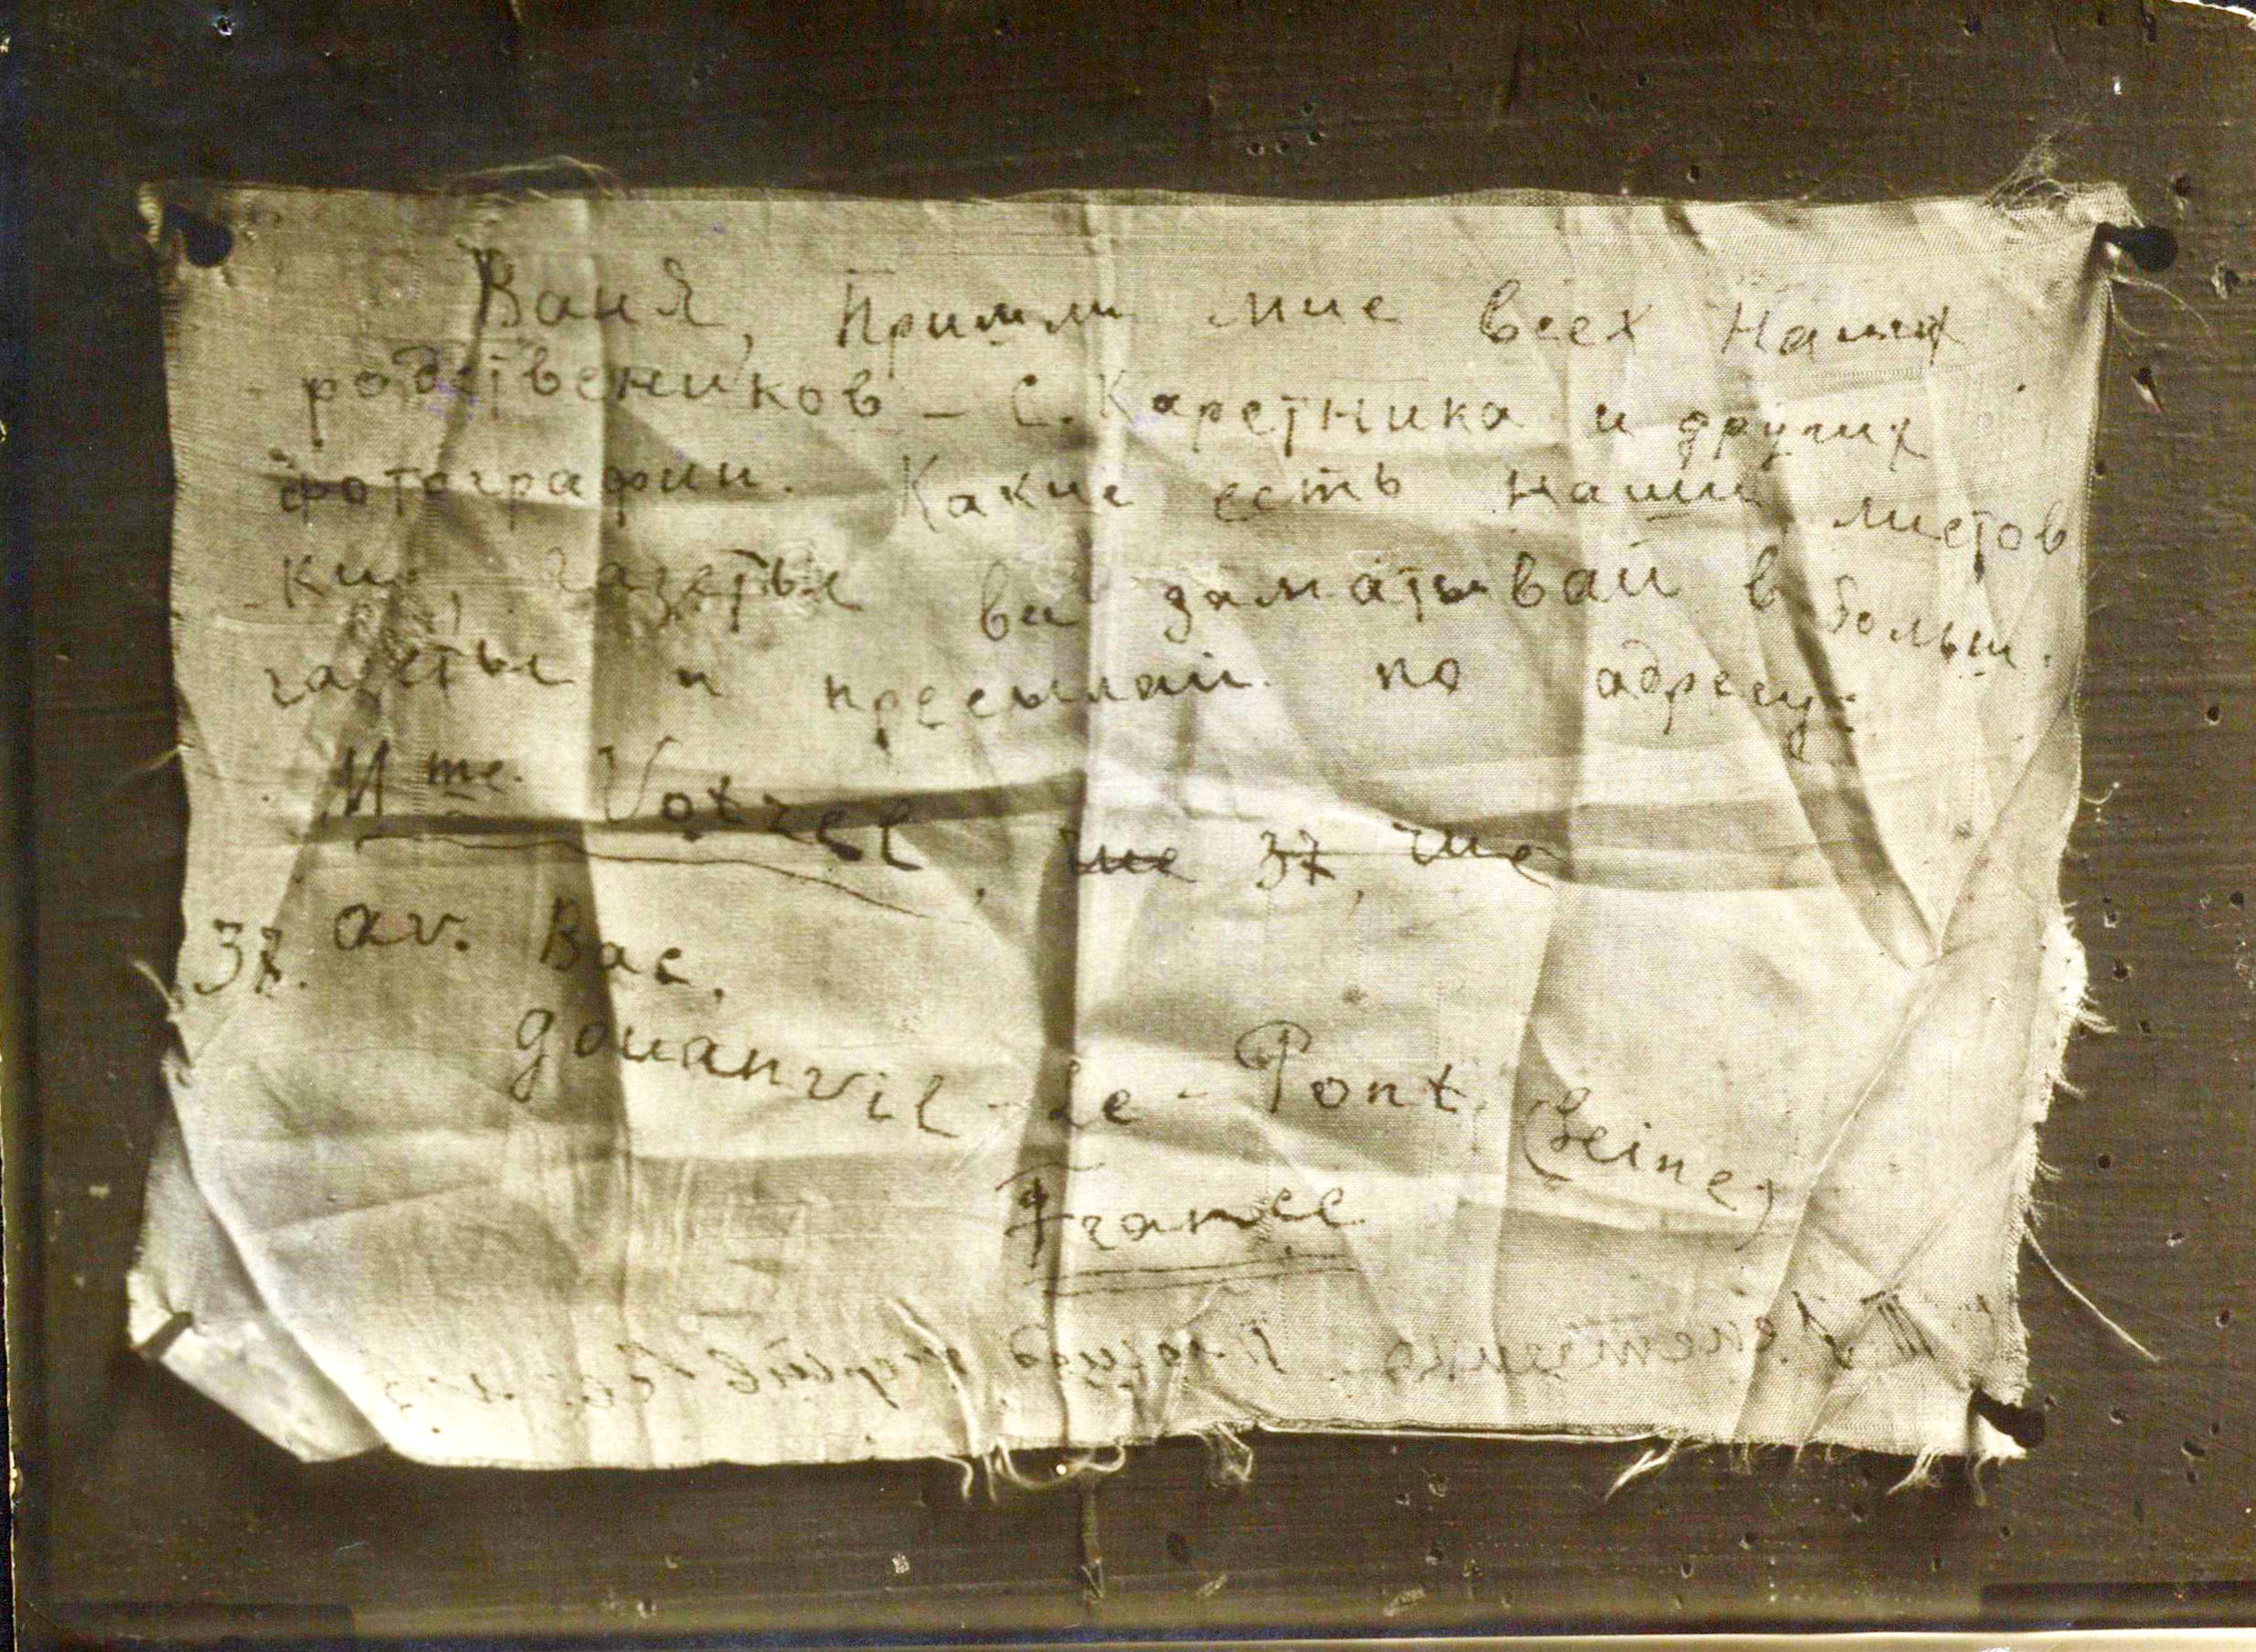 Ваня, Пришли мне всех наших
родствеников – С. Каретника и других
фотографии. Какие есть наши листов
ки, газеты вы заматывай в больш.
газеты и пресылай по адресу:
Mme. Votzel, rue 37, rue
37. av. Bac.
gouanvil-le-Pont (Seine)
France